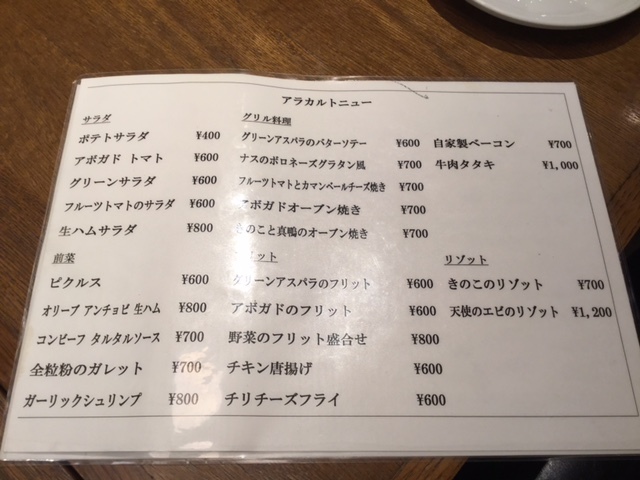 アラカルトニュー
サラダ
ポテトサラダ ¥400
アボガド トマト ¥600
グリーンサラダ ¥600
フルーツトマトのサラダ ¥600
生ハムサラダ ¥800
前菜
ピクルス ¥600
オリーブ アンチョビ 生ハム ¥800
コンビーフ タルタルソース ¥700
全粒粉のガレット ¥700
ガーリックシュリンプ ¥800
グリル料理
グリーンアスパラのバターソテー ¥600
ナスのボロネーズグラタン風 ¥700
フルーツトマトとカマンベールチーズ焼き ¥700
アボガドオーブン焼き ¥700
きのこと真鴨のオーブン焼き ¥700
自家製ベーコン ¥700
牛肉タタキ ¥1,000
ット
グリーンアスパラのフリット ¥600
アボガドのフリット ¥600
野菜のフリット盛合せ ¥800
チキン唐揚げ ¥600
チリチーズフライ ¥600
リゾット
きのこのリゾット ¥700
天使のエビのリゾット ¥1,200